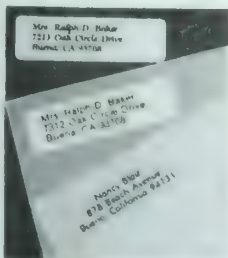 Mrs. Ralph D. Baker
Oak Circle Drive
Buena, CA 93708
Mrs. Ralph D. Baker
7312 Oak Circle Drive
Buena, CA 93708
Nancy Blau
878 Beach Avenue
Bueno, California